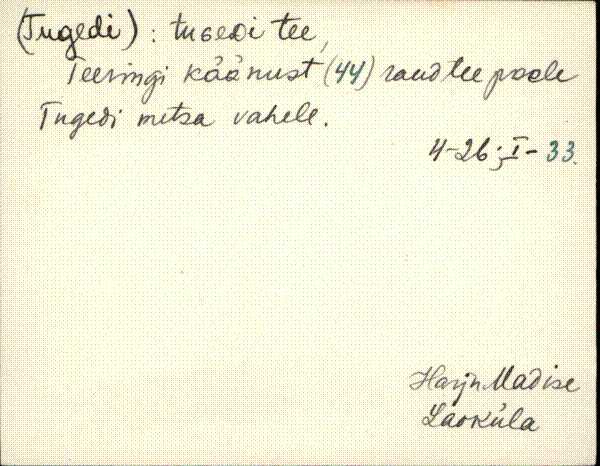 (Tugedi) : tugedi tee,
Teeringi käänust (44) raudtee poole
Tugedi metsa vahele.
4-26; I - 33.
Harju Madise
Laoküla